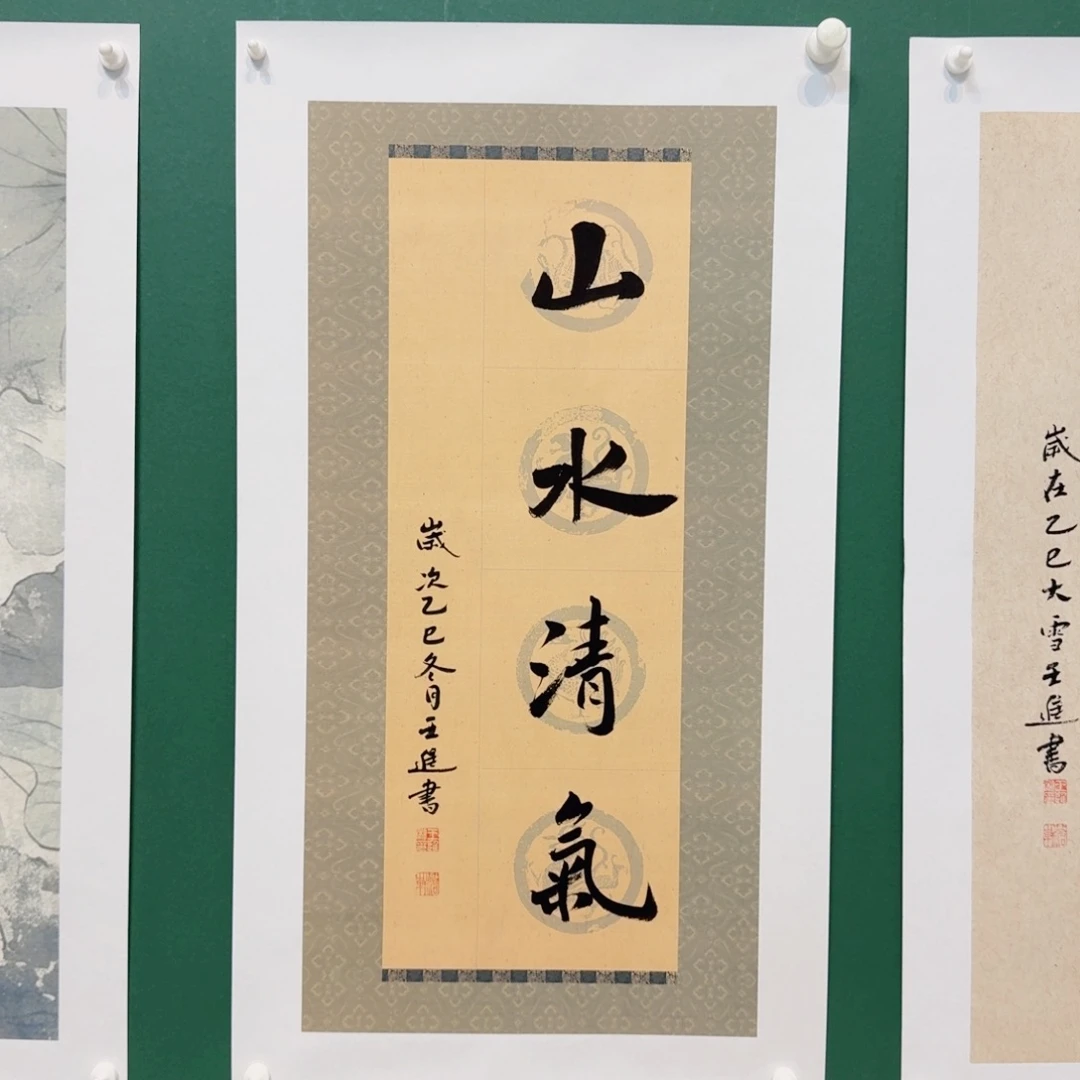 山水清氣
歲次乙巳冬月王進書
歲在乙巳大雪王進書